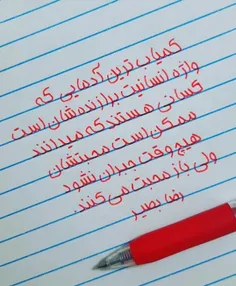 کمیاب ترین آدمایی که
واژه انسانیت برازنده شان است
کسانی هستند که میدانند
ممکن است محبتشان
هیچوقت جبران نشود
ولی باز محبت می کنند.
رضا بصیر